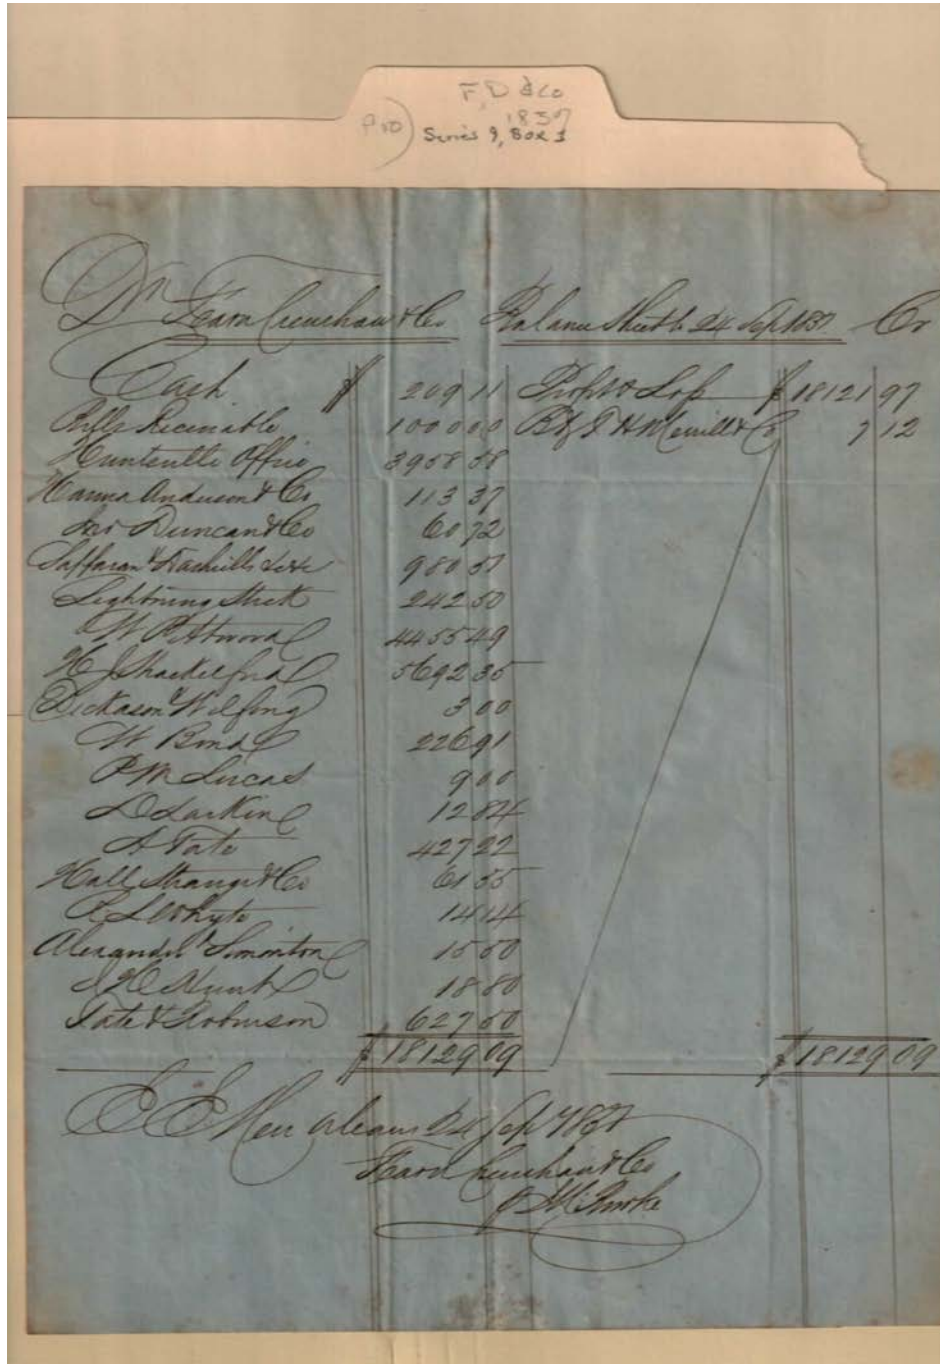 F, D & Co
1837
Pro) Series 9, Box 1
Dr Fearn Crenshaw & Co Balance Sheet to 24 Sep 1837 Cr
Cash $ 209 11 Profit & Loss $ 18121 97
Bills Receivable 1000 00 By J H Merrill & Co 7 12
Huntsville Office 3958 58
Hanna Anderson & Co 113 37
Duncan & Co 60 72
Saffaran & 980 51
Lightning Street 242 50
W P Attwood 4455 49
H J Shackelford 5692 35
Dickason & Wilfong 3 00
W Bond 226 91
P M Lucas 9 00
D Larkin 12 84
A Tate 427 22
Hall Strange & Co 61 55
R L Whyte 14 14
Alexander & Simonton 15 50
J H Hunt 18 80
Tate & Robinson 627 50
$ 18129 09 $ 18129 09
E E New Orleans 24 Sep 1837
Fearn Crenshaw & Co